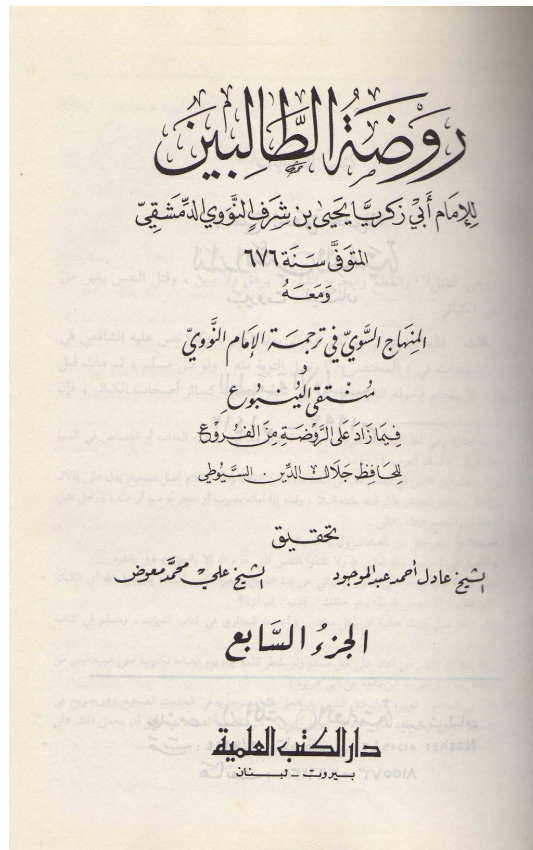 رَوْضَةُ الطَّالِبِينَ
لِلإِمَام أَبِي زَكَرِيَّا يَحْيَى بن شَرَف النَّوَوِي الدِّمَشْقِيّ
المتَوفَّى سَنَة ٦٧٦
وَمَعَهُ
المِنهَاجُ السَّوِيّ فِي تَرجَمَة الإِمَام النَّوَوِيّ
و
مُنتَقَى اليَنبُوع
فِيمَا زَادَ عَلَى الرَّوضَةِ مِنَ الفُرُوع
لِلحَافِظ جَلَال الدِّين السّيُوطي
تحقيق
الشيخ عادل أحمد عبد الموجود الشيخ علي محمّد معوض
الجزءُ السَّابع
دار الكتب العلمية
بيروت - لبنان